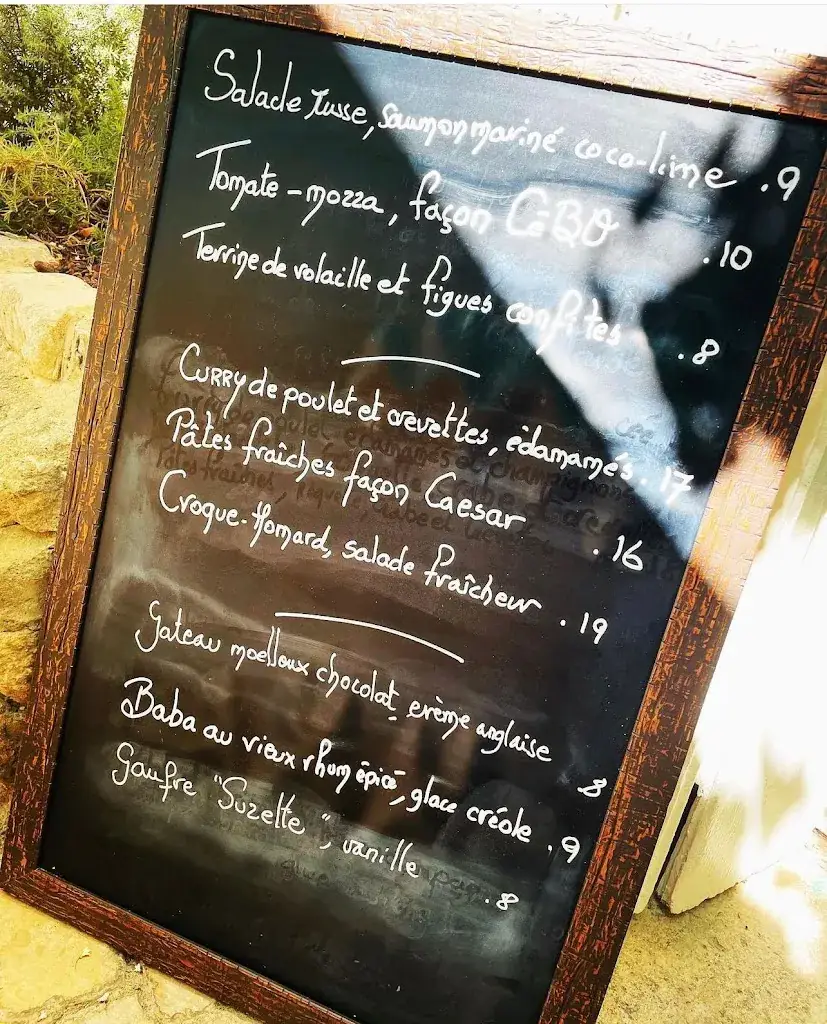 Salade russe, saumon mariné coco-lime .9
Tomate-mozza, façon CÔBO .10
Terrine de volaille et figues confites .8
Curry de poulet et crevettes, édamamés. 17
Pâtes fraîches façon Caesar .16
Croque-Homard, salade fraîcheur .19
Gateau moelleux chocolat, crème anglaise .8
Baba au vieux rhum épicé, glace créole .9
Gaufre "Suzette", vanille .8